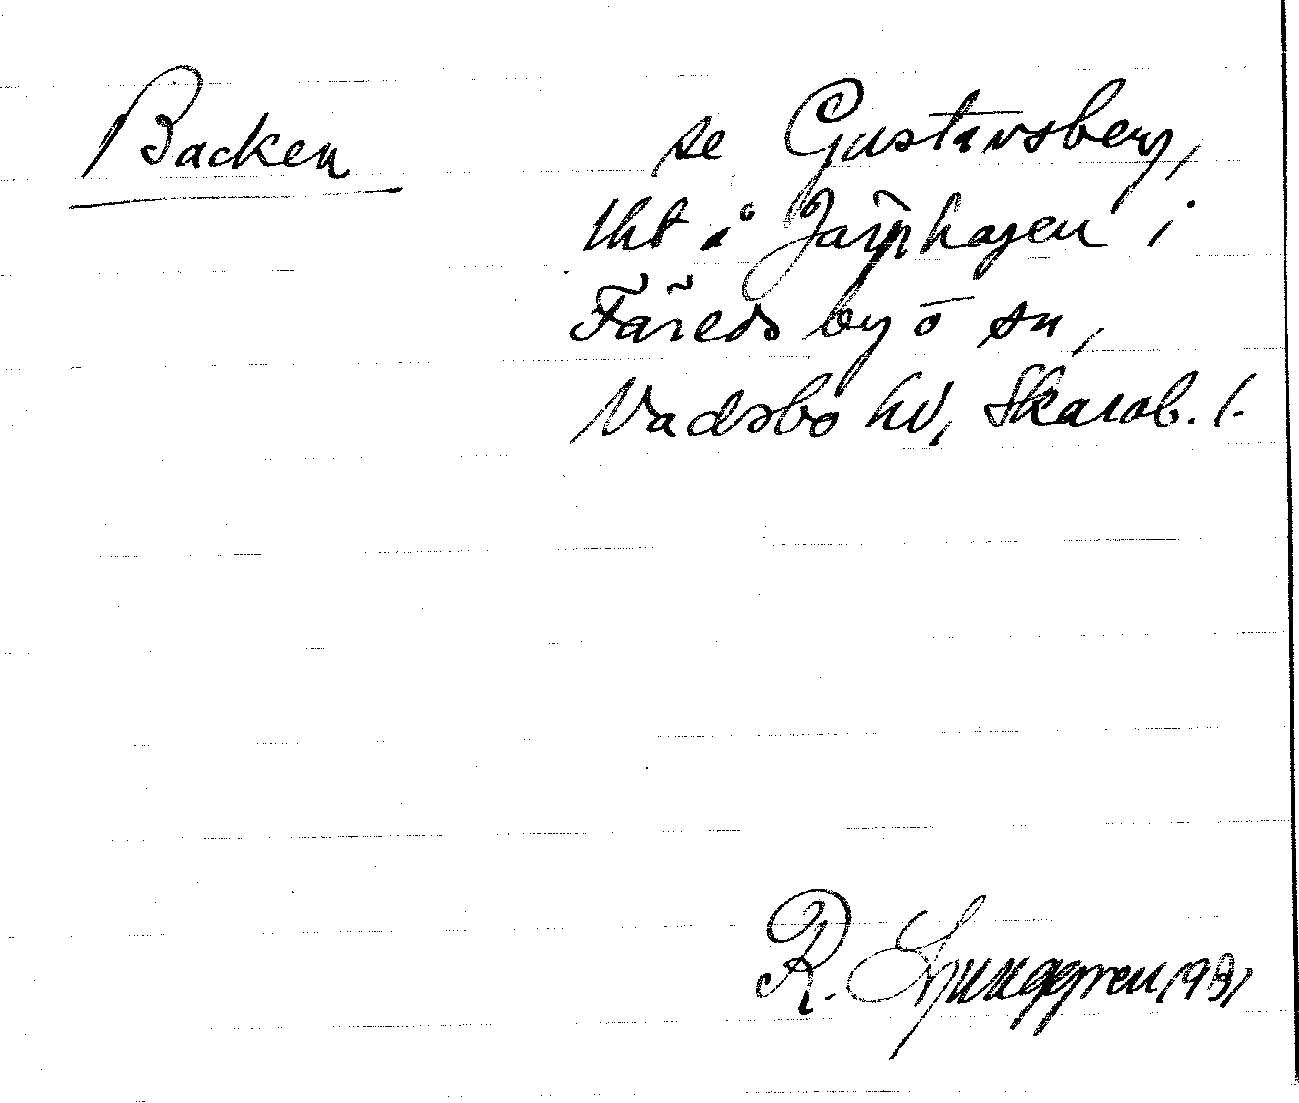 Backen se Gustavsberg,
lht å Järphagen i
Färeds by o sn,
Vadsbo hd, Skarab. l.
R. Ljunggren 1931